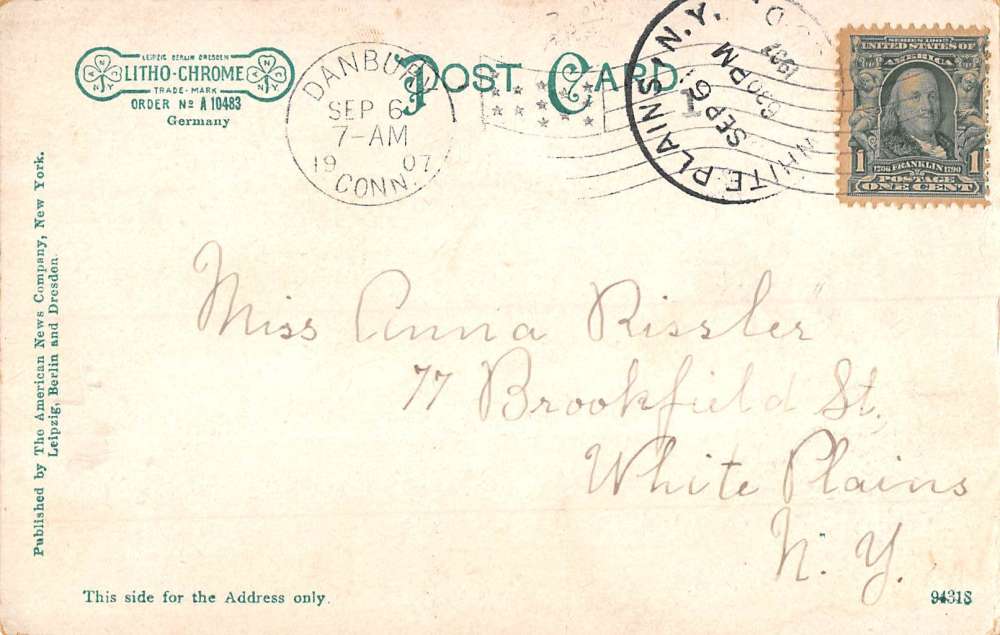 LEIPZIG BERLIN DRESDEN
LITHO-CHROME
TRADE-MARK
ORDER No A 10483
Germany
POST CARD.
DANBURY
SEP 6
7-AM
19 07
CONN.
WHITE PLAINS, N.Y.
SEP 6
630 PM
1907
1
SERIES 1902
UNITED STATES OF
AMERICA
1 1
1706 FRANKLIN 1790
POSTAGE
ONE CENT
Miss Anna Rissler
77 Brookfield St.
White Plains
N. Y.
Published by The American News Company, New York.
Leipzig, Berlin and Dresden.
This side for the Address only.
94318